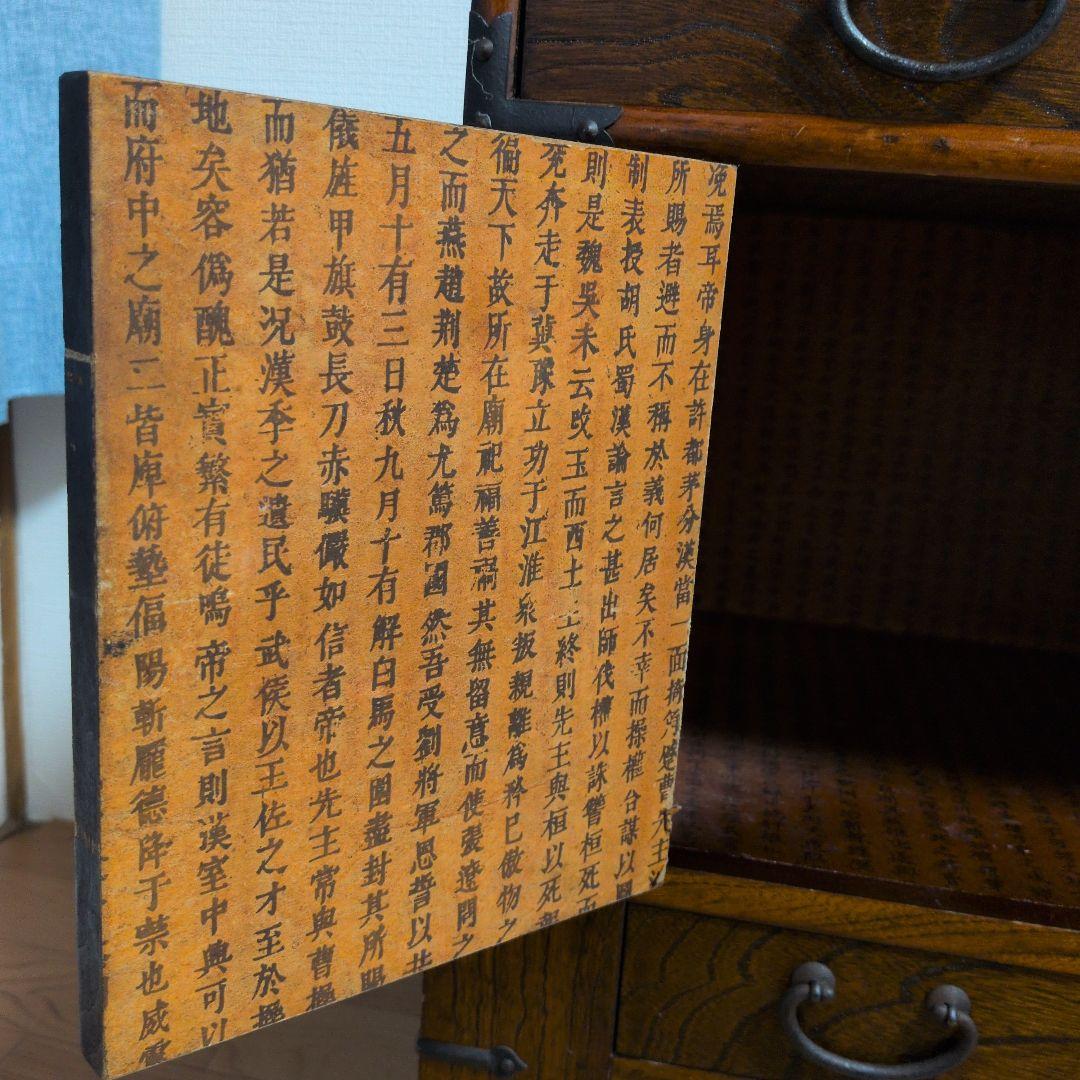 焉耳帝身在許都茅分漢當一面曹先主
所賜者避而不稱於義何居矣不幸而操權台謀以圖
制表授胡氏蜀漢論言之甚出師伐權以誅讐桓死而
則是魏吳未云攺玉而西土主終則先主與桓以死報
兖奔走于冀豫立功于江淮衆叛親離爲矜已傲物之
徧天下故所在廟祀福善禍其無留意而使張遼問之
之而燕趙荆楚爲尤篤郡國然吾受劉將軍恩誓以共
五月十有三日秋九月十有解白馬之圍盡封其所賜
儀旌甲旗鼓長刀赤驥儼如信者帝也先主常與曹操
而猶若是况漢季之遺民乎武侯以王佐之才至於操
地矣容僞醜正寔繁有徒嗚帝之言則漢室中興可以
而府中之廟二皆庳俯墊傴陽斬龐德降于禁也威震